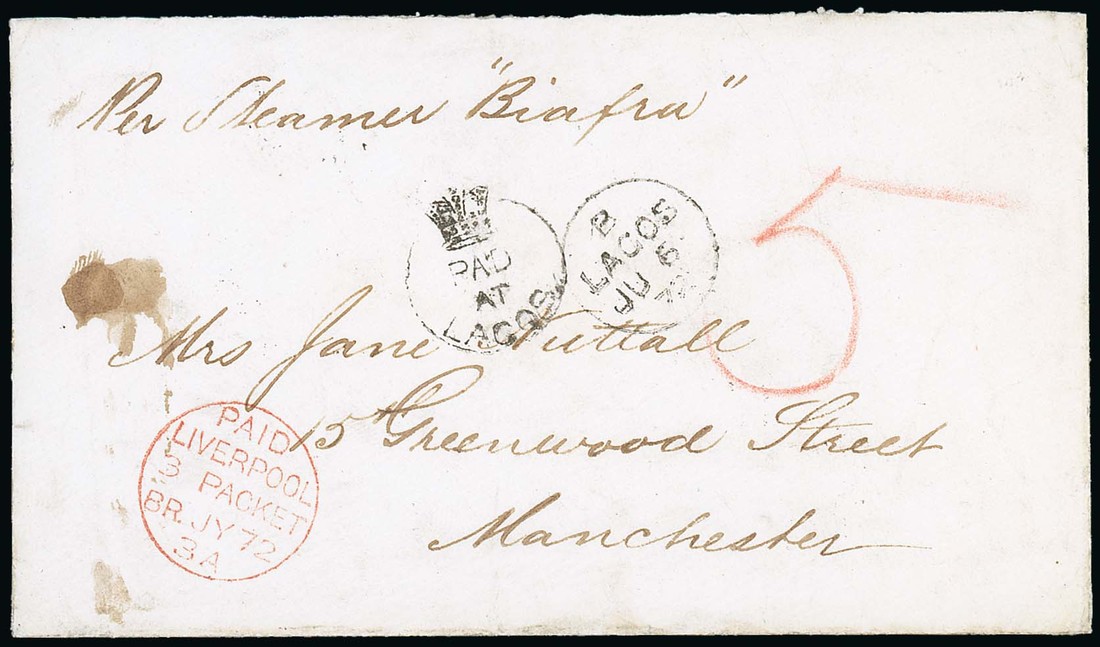 Per Steamer "Biafra"
PAID
AT
LAGOS
B
LAGOS
JU 6
72
5
Mrs Jane Nuttall
15 Greenwood Street
Manchester
PAID
LIVERPOOL
3 PACKET
BR. JY 72
3A